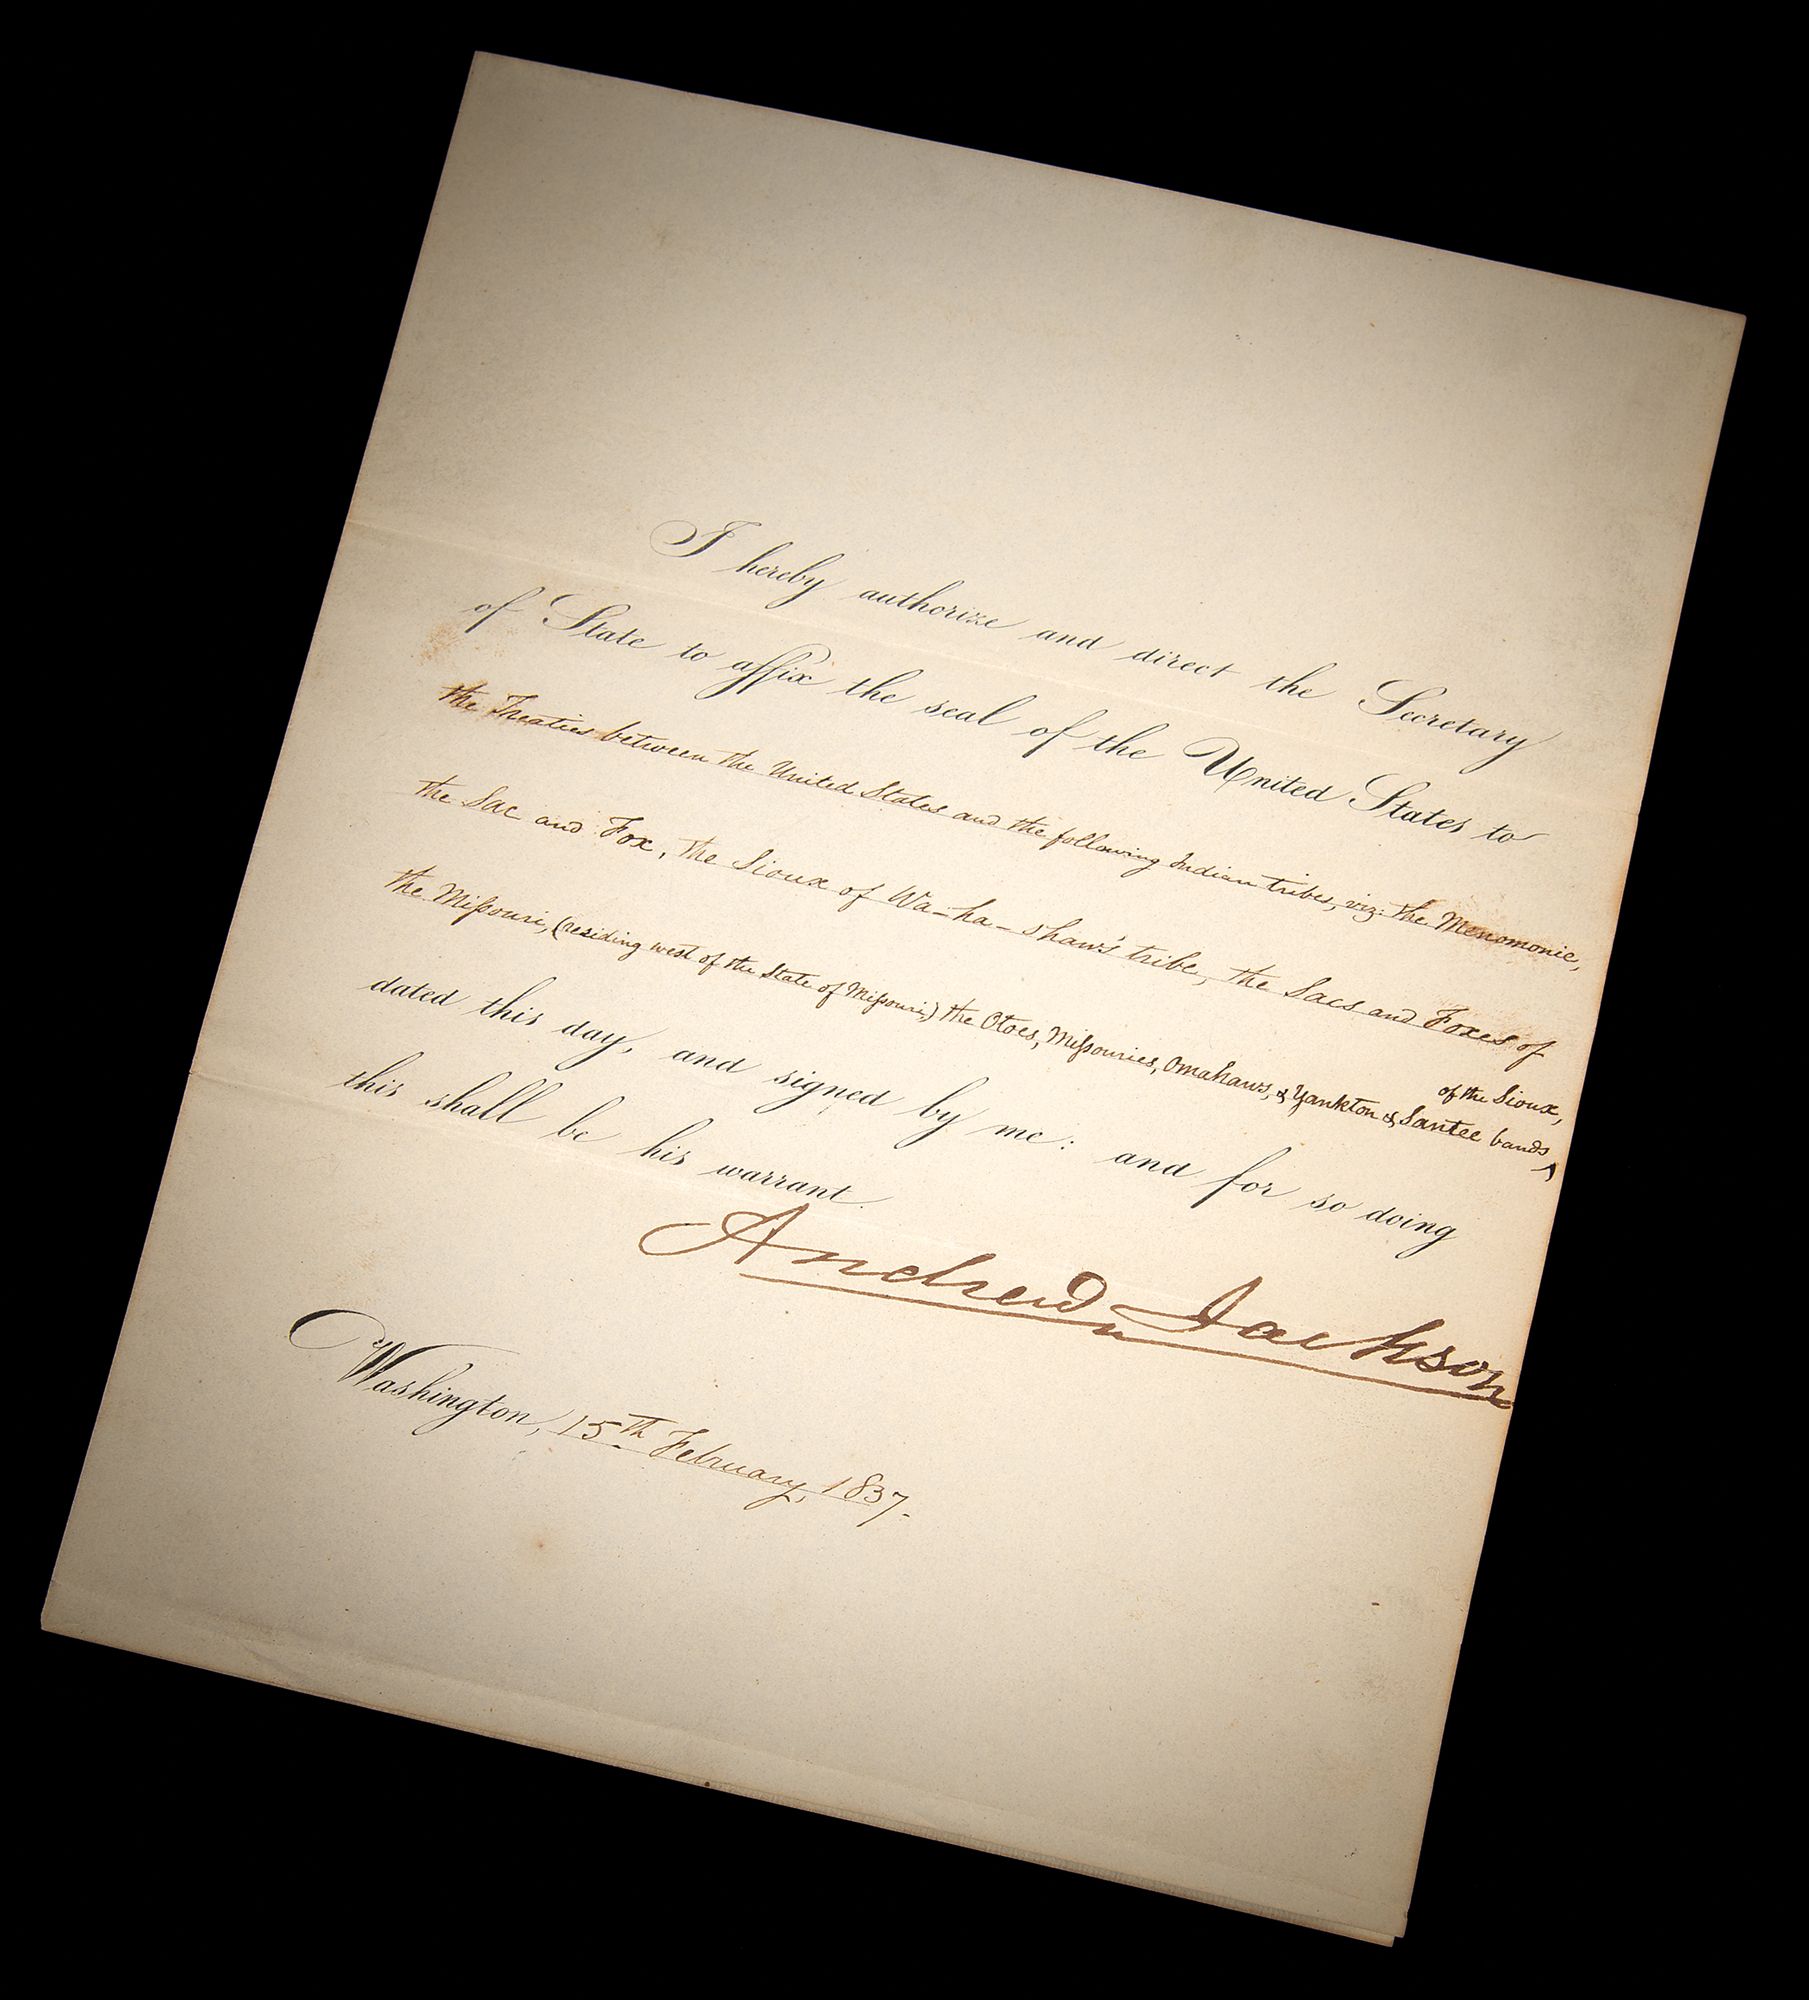 I hereby authorize and direct the Secretary
of State to affix the seal of the United States to
the Treaties between the United States and the following Indian tribes, viz: the Menomonie,
the Sac and Fox, the Sioux of Wa-ha-shaw's tribe, the Sacs and Foxes of
the Missouri, (residing west of the State of Missouri,) the Otoes, Missouries, Omahaws, & Yankton & Santee bands ^
of the Sioux,
dated this day, and signed by me: and for so doing
this shall be his warrant.
Andrew Jackson
Washington, 15th February, 1837.